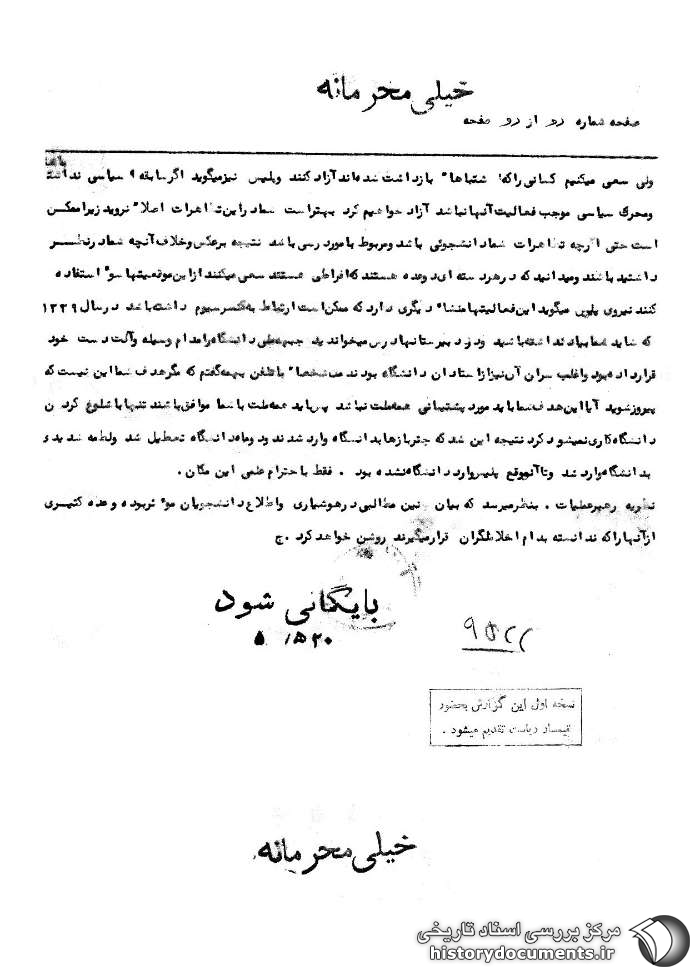 خیلی محرمانه
صفحه شماره دو از دو صفحه
ولی سعی میکنیم کسانی راکه اشتباها" بازداشت شده‌اند آزاد کنند وپلیس نیزمیگوید اگرسابقه سیاسی نداشته
ومحرک سیاسی موجب فعالیت آنها نباشد آزاد خواهیم کرد بهتراست شما دراین تظاهرات اصلا" نروید زیراممکن
است حتی اگرچه تظاهرات شما دانشجوئی باشد ومربوط بامور درسی باشد نتیجه برعکس وخلاف آنچه شما درنظر
داشتید باشند ومیدانید که درهردسته ای دوعده هستند که افراطی هستند سعی میکنند ازاین موقعیتها سو" استفاده
کنند نیروی پلیس میگوید این فعالیتها منشاء دیگری دارد که ممکن است ارتباط به کنسرسیوم داشته باشد درسال ۱۳۳۹
که شاید شما بیاد نداشته باشید ودر دبیرستانها درس میخواندید جبهه ملی دانشگاه رامدام وسیله وآلت دست خود
قرارداده بود واغلب سران آن نیزازاستادان دانشگاه بودند من شخصا" باتلفن بهمه گفتم که مگرهدف شما این نیست که
پیروزشوید آیا این هدف شما باید مورد پشتیبانی همه ملت نباشد پس باید همه ملت باشما موافق باشند تنها با شلوغ کردن
دانشگاه کاری نمیشود کرد نتیجه این شد که چتربازها بدانشگاه وارد شدند ودوماه دانشگاه تعطیل شد ولطمه شدید و
بدانشگاه وارد شد وتاآنموقع پلیس وارد دانشگاه نشده بود . فقط باحترام علمی این مکان .
نظریه رهبرعملیات . بنظرمیرسد که بیان چنین مطالبی درهوشیاری واطلاع دانشجویان مو"ثربوده وعده کثیری
ازآنها راکه ندانسته بدام اخلالگران قرارمیگیرند روشن خواهد کرد . ج
بایگانی شود
۵/۵۲۰
۹۵۲۲
نسخه اول این گزارش بحضور
تیمسار ریاست تقدیم میشود .
خیلی محرمانه
مرکز بررسی اسناد تاریخی
historydocuments.ir